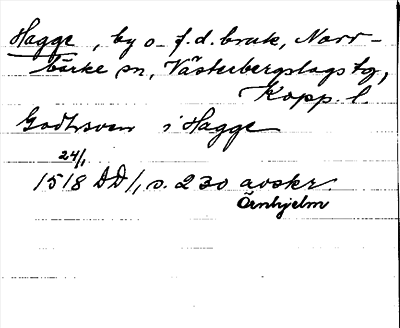 Hagge, by o. f.d. bruk, Norr-
bärke sn, Västerbergslags tg,
Kopp. l.
Godhsven i Hagge
24/1
1518 DD/1, s. 230 avskr.
Örnhjelm